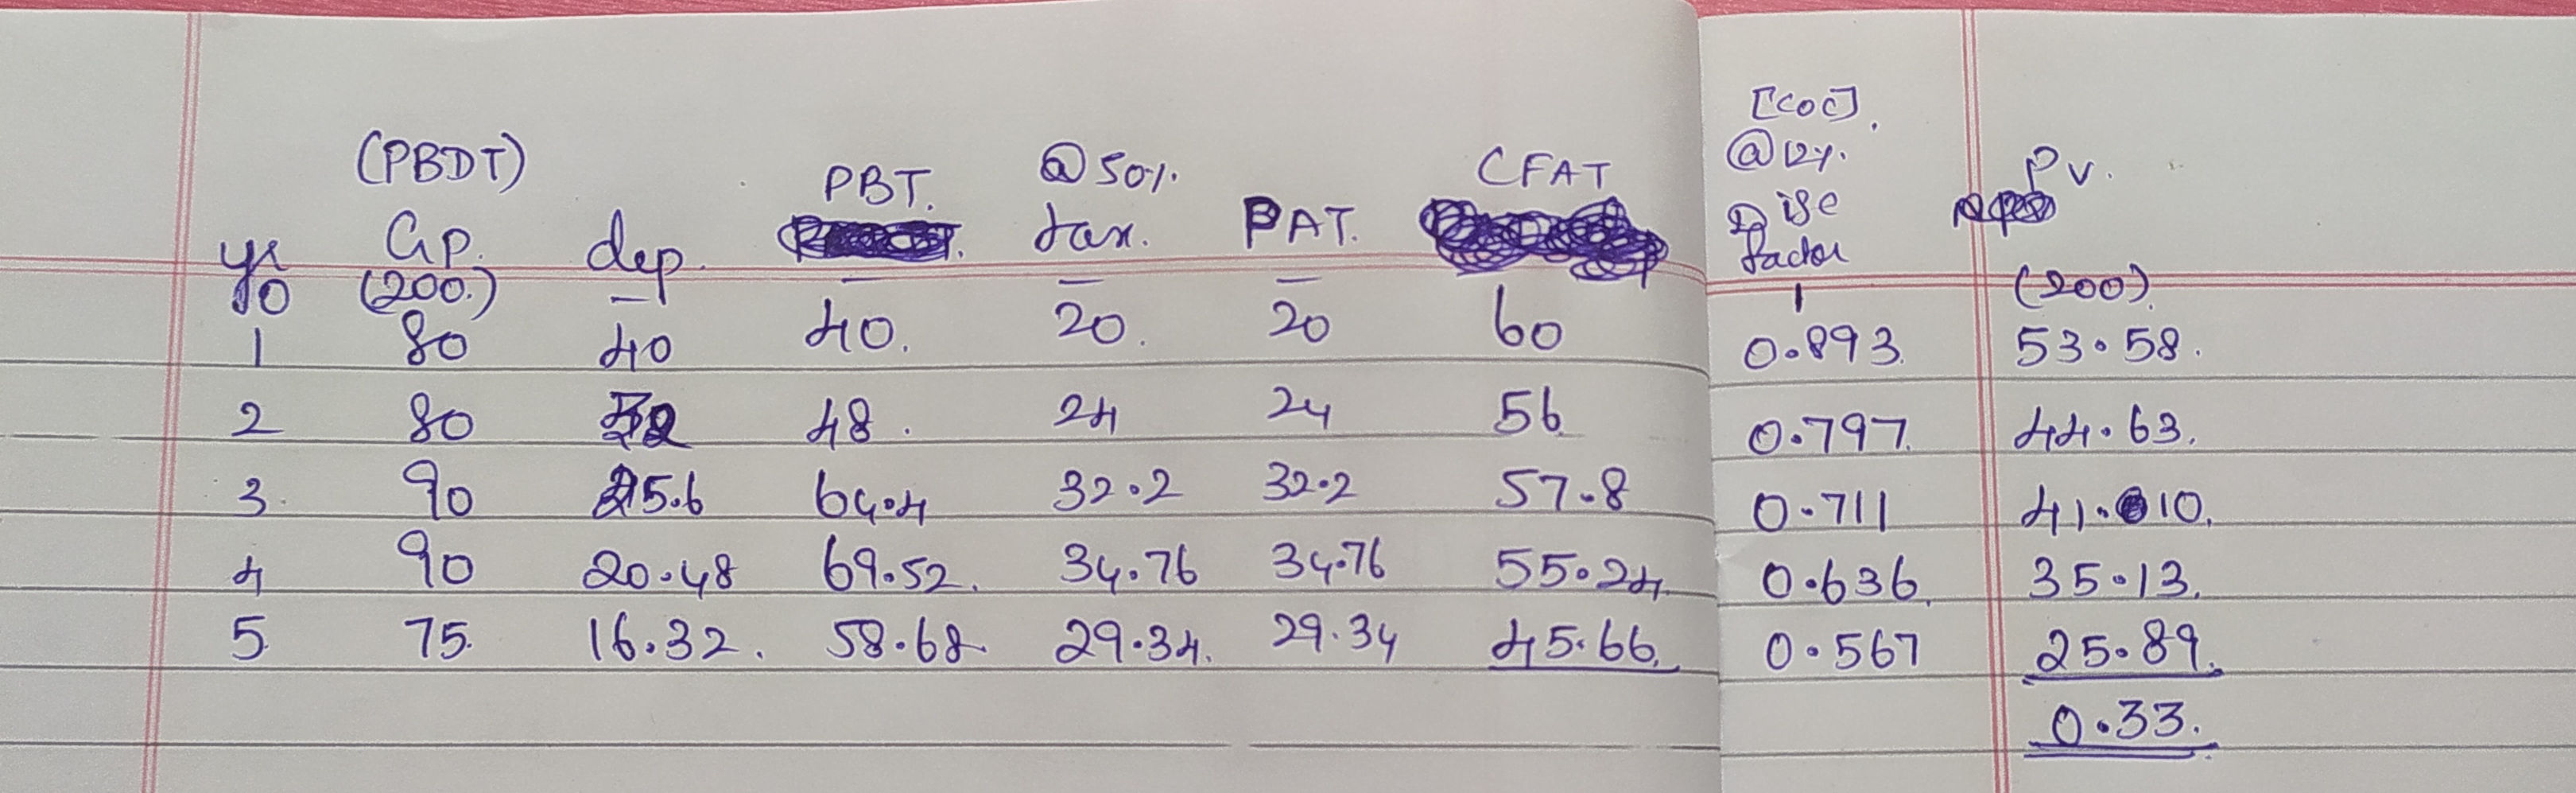 [COC].
(PBDT) PBT. @50%. CFAT @12%. PV.
yr GP. dep. tax. PAT. Disc factor
0 (200.) – – – – 1 (200).
1 80 40 40. 20. 20 60 0.893. 53.58.
2 80 32 48. 24 24 56 0.797. 44.63.
3. 90 25.6 64.4 32.2 32.2 57.8 0.711 41.10.
4 90 20.48 69.52. 34.76 34.76 55.24. 0.636. 35.13.
5. 75. 16.32. 58.68. 29.34. 29.34 45.66. 0.567 25.89.
0.33.